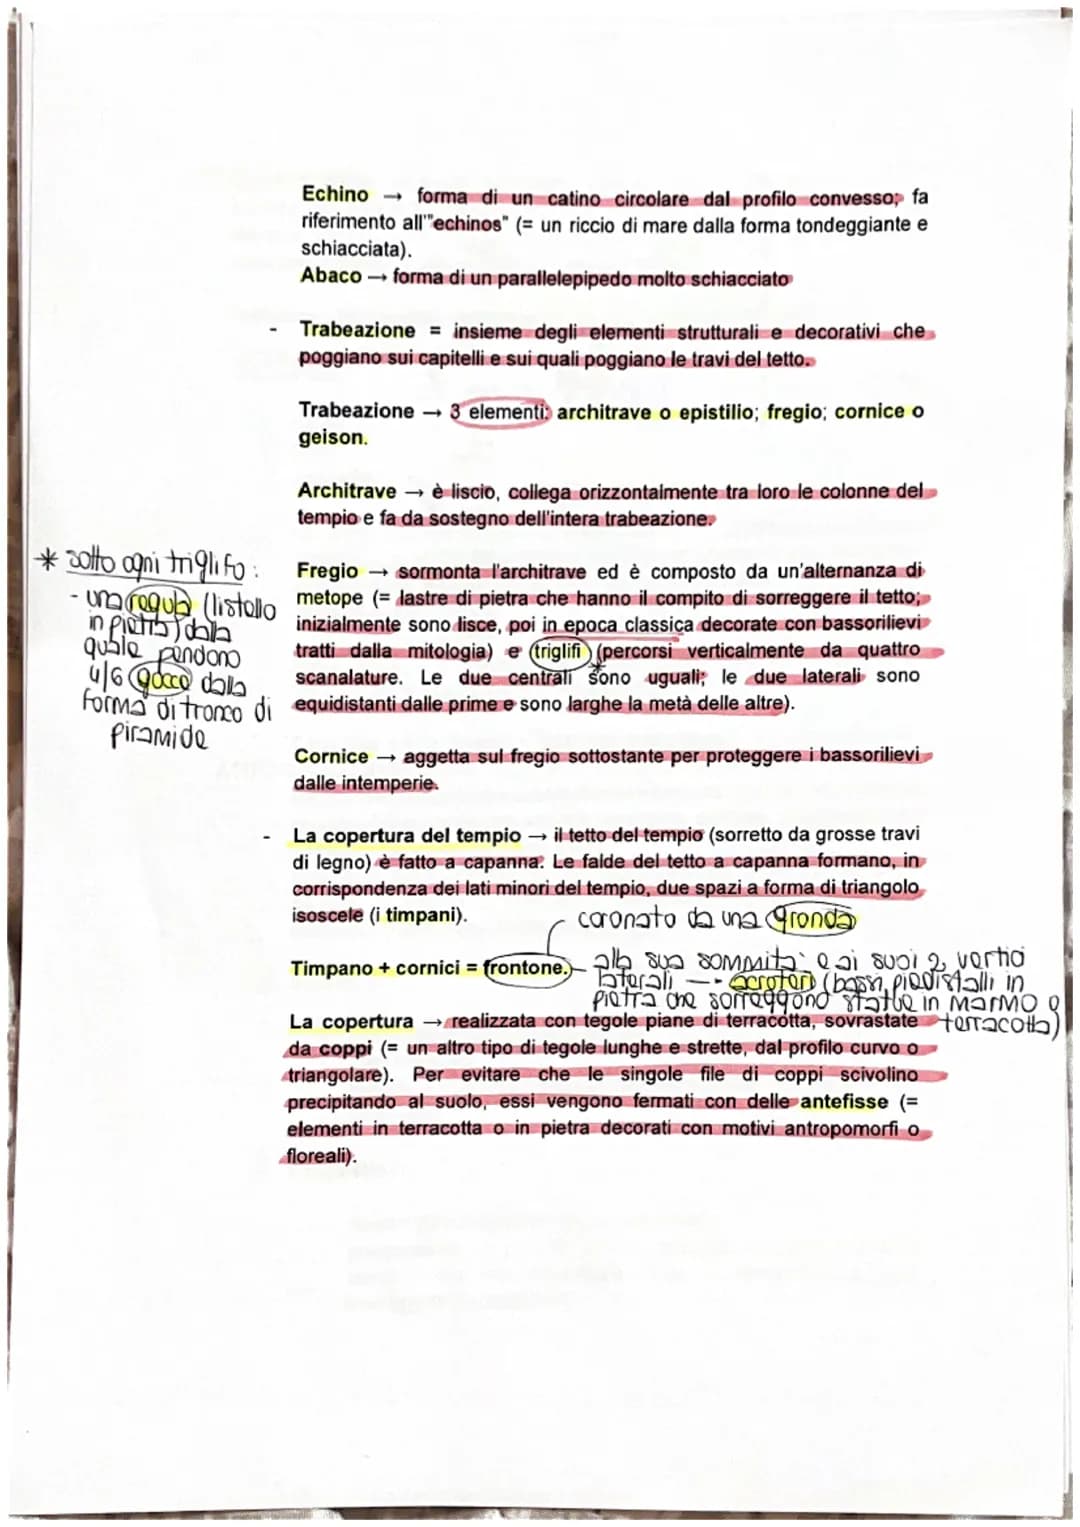 Echino → forma di un catino circolare dal profilo convesso; fa
riferimento all'"echinos" (= un riccio di mare dalla forma tondeggiante e
schiacciata).
Abaco → forma di un parallelepipedo molto schiacciato
- Trabeazione = insieme degli elementi strutturali e decorativi che
poggiano sui capitelli e sui quali poggiano le travi del tetto.
Trabeazione → 3 elementi: architrave o epistilio; fregio; cornice o
geison.
Architrave → è liscio, collega orizzontalmente tra loro le colonne del
tempio e fa da sostegno dell'intera trabeazione.
* sotto ogni triglifo:
- una regula (listello
in pietra) dalla
quale pendono
4/6 gocce dalla
forma di tronco di
piramide
Fregio → sormonta l'architrave ed è composto da un'alternanza di
metope (= lastre di pietra che hanno il compito di sorreggere il tetto;
inizialmente sono lisce, poi in epoca classica decorate con bassorilievi
tratti dalla mitologia) e triglifi (percorsi verticalmente da quattro
scanalature. Le due centrali sono uguali; le due laterali sono
equidistanti dalle prime e sono larghe la metà delle altre).
*
Cornice → aggetta sul fregio sottostante per proteggere i bassorilievi
dalle intemperie.
- La copertura del tempio → il tetto del tempio (sorretto da grosse travi
di legno) è fatto a capanna. Le falde del tetto a capanna formano, in
corrispondenza dei lati minori del tempio, due spazi a forma di triangolo
isoscele (i timpani).
coronato da una gronda
Timpano + cornici = frontone.
alla sua sommità e ai suoi 2 vertici
laterali → acroteri (bassi piedistalli in
pietra che sorreggono statue in marmo o
terracotta)
La copertura → realizzata con tegole piane di terracotta, sovrastate
da coppi (= un altro tipo di tegole lunghe e strette, dal profilo curvo o
triangolare). Per evitare che le singole file di coppi scivolino
precipitando al suolo, essi vengono fermati con delle antefisse (=
elementi in terracotta o in pietra decorati con motivi antropomorfi o
floreali).